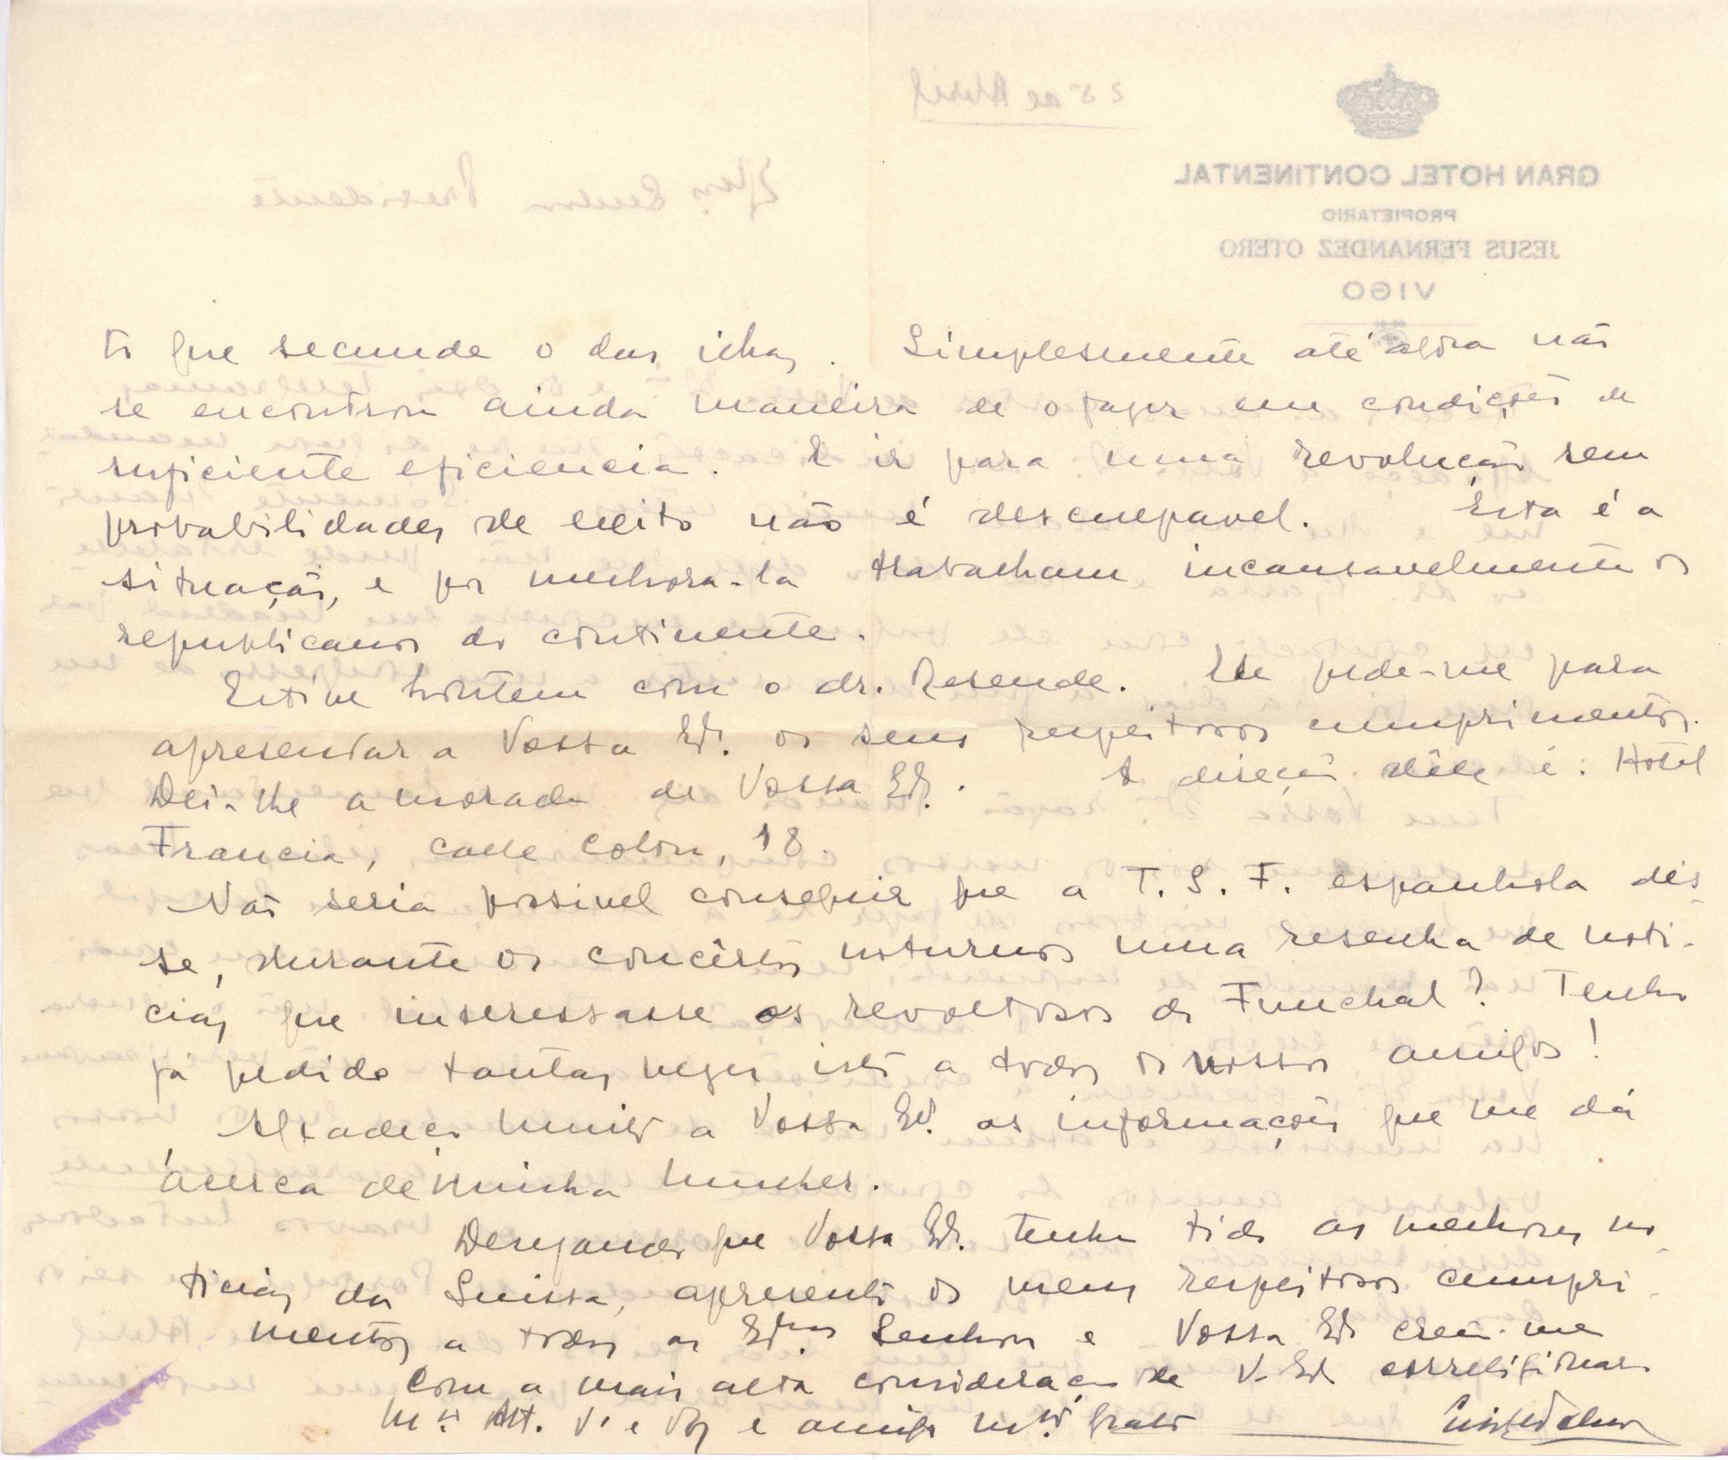 to que secunde o das ilhas. Simplesmente até agora não
se encontrou ainda maneira de o fazer em condições de
suficiente eficiencia. E ir para uma revolução sem
probabilidades de exito não é desculpavel. Esta é a
situação, e por melhora-la trabalham incansavelmente os
republicanos do continente.
Estive hontem com o dr. Resende. Ele pede-me para
apresentar a Vossa Exª. os seus respeitosos cumprimentos.
Dei-lhe a morada de Vossa Exª. A direção dêle é: Hotel
Francia, calle Colon, 18.
Não seria possivel conseguir que a T. S. F. espanhola dés-
se, durante os concêrtos noturnos uma resenha de noti-
cias que interessasse os revoltosos do Funchal? Tenho
já pedido tantas vezes isto a todos os nossos amigos!
Agradeço muito a Vossa Exª. as informações que me dá
ácerca de minha mulher.
Desejando que Vossa Exª. tenha tido as melhores no-
ticias da Suissa, apresento os meus respeitosos cumpri-
mentos a todos os Exmos Senhores e Vossa Exª creia-me
com a mais alta consideração de V. Exª correligionario
Mto Att. Vr e Obg e amigo mto grato
25 de Abril
Exmo Senhor Presidente
GRAN HOTEL CONTINENTAL
PROPIETARIO
JESUS FERNANDEZ OTERO
VIGO